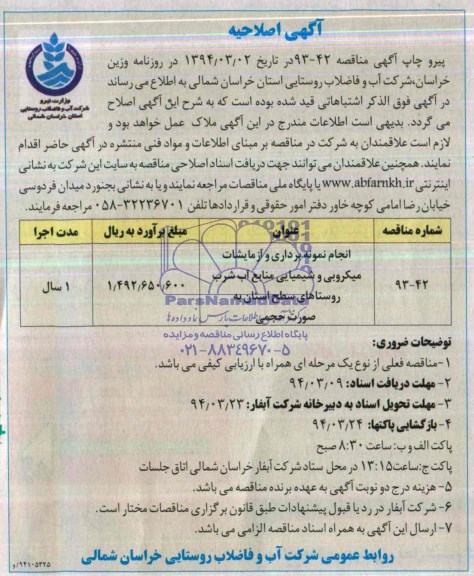 آگهی اصلاحیه
پیرو چاپ آگهی مناقصه ۴۲-۹۳ در تاریخ ۱۳۹۴/۰۳/۰۲ در روزنامه وزین
خراسان،شرکت آب و فاضلاب روستایی استان خراسان شمالی به اطلاع می رساند
در آگهی فوق الذکر اشتباهاتی قید شده بوده است که به شرح این آگهی اصلاح
می گردد. بدیهی است اطلاعات مندرج در این آگهی ملاک عمل خواهد بود و
لازم است علاقمندان به شرکت در مناقصه بر مبنای اطلاعات و مواد فنی منتشره در آگهی حاضر اقدام
نمایند. همچنین علاقمندان می توانند جهت دریافت اسناد اصلاحی مناقصه به سایت این شرکت به نشانی
اینترنتی www.abfarnkh.ir یا پایگاه ملی مناقصات مراجعه نمایند و یا به نشانی بجنورد میدان فردوسی
خیابان رضا امامی کوچه خاور دفتر امور حقوقی و قراردادها تلفن ۳۲۲۳۶۷۰۱-۰۵۸ مراجعه فرمایند.
وزارت نیرو
شرکت آب و فاضلاب روستایی
استان خراسان شمالی
شماره مناقصه عنوان مبلغ برآورد به ریال مدت اجرا
انجام نمونه برداری و آزمایشات
میکروبی و شیمیایی منابع آب شرب
۹۳-۴۲ روستاهای سطح استان به ۱/۴۹۲/۶۵۰/۶۰۰ ۱ سال
صورت حجمی
ParsNamadData
پایگاه اطلاع رسانی مناقصه و مزایده
۰۲۱-۸۸۳۴۹۶۷۰-۵
توضیحات ضروری:
۱-مناقصه فعلی از نوع یک مرحله ای همراه با ارزیابی کیفی می باشد.
۲- مهلت دریافت اسناد: ۹۴/۰۳/۰۹
۳- مهلت تحویل اسناد به دبیرخانه شرکت آبفار: ۹۴/۰۳/۲۳
۴- بازگشایی پاکتها: ۹۴/۰۳/۲۴
پاکت الف و ب: ساعت ۸:۳۰ صبح
پاکت ج:ساعت۱۳:۱۵ در محل ستاد شرکت آبفار خراسان شمالی اتاق جلسات
۵- هزینه درج دو نوبت آگهی به عهده برنده مناقصه می باشد.
۶- شرکت آبفار در رد یا قبول پیشنهادات طبق قانون برگزاری مناقصات مختار است.
۷- ارسال این آگهی به همراه اسناد مناقصه الزامی می باشد.
روابط عمومی شرکت آب و فاضلاب روستایی خراسان شمالی
۹۴۱۰۵۳۲۵/و